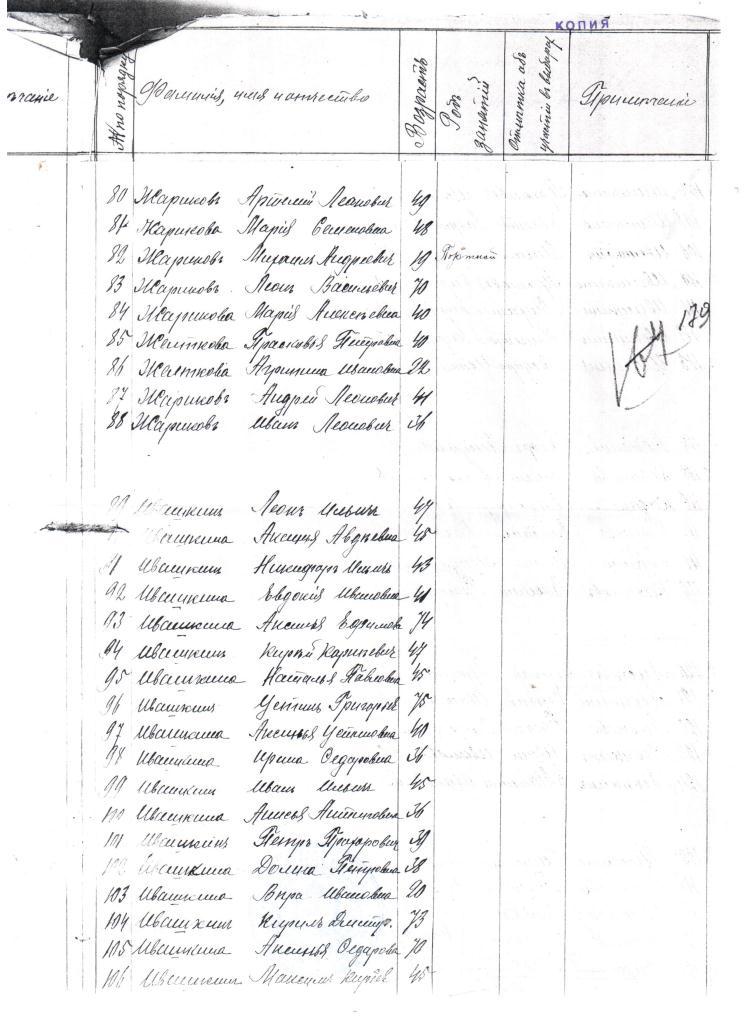 КОПИЯ
№ по порядку Фамилія, имя и отчество Возрастъ Родъ занятій Отмѣтка объ участіи въ выборахъ Примѣчаніе
чаніе
80 Жариковъ Артемій Леонович 49
81 Жарикова Марія Семеновна 48
82 Жариковъ Михаилъ Андреевич 19 Портной
83 Жариковъ Леонъ Васильевич 70
84 Жарикова Марія Алексѣевна 40
85 Желткова Прасковья Петровна 40
179
86 Желткова Ивановна
87 Жариковъ Андрей Леонович 41
88 Жариковъ Иванъ Леонович 36
Ивашкинъ Леонъ Ильичъ 47
Ивашкина Аксинья Авдѣевна 45
91 Ивашкинъ Никифоръ Ильичъ 43
92 Ивашкина Евдокія Ивановна 41
93 Ивашкина Аксинья Ефимова 74
94 Ивашкинъ 47
95 Ивашкина Наталья Павловна 45
96 Ивашкинъ Устинъ Григорьев 75
97 Ивашкина Аксинья Устиновна 40
98 Ивашкина Ирина Федаровна 36
99 Ивашкинъ Иванъ Ильичъ 45
100 Ивашкина Анисья 36
101 Ивашкинъ Петръ Прохорович 39
102 Ивашкина Домна Петровна 38
103 Ивашкина Вѣра Ивановна 20
104 Ивашкинъ Кирилъ Дмитр. 73
105 Ивашкина Аксинья Федарова 70
106 Ивашкинъ Максимъ 45